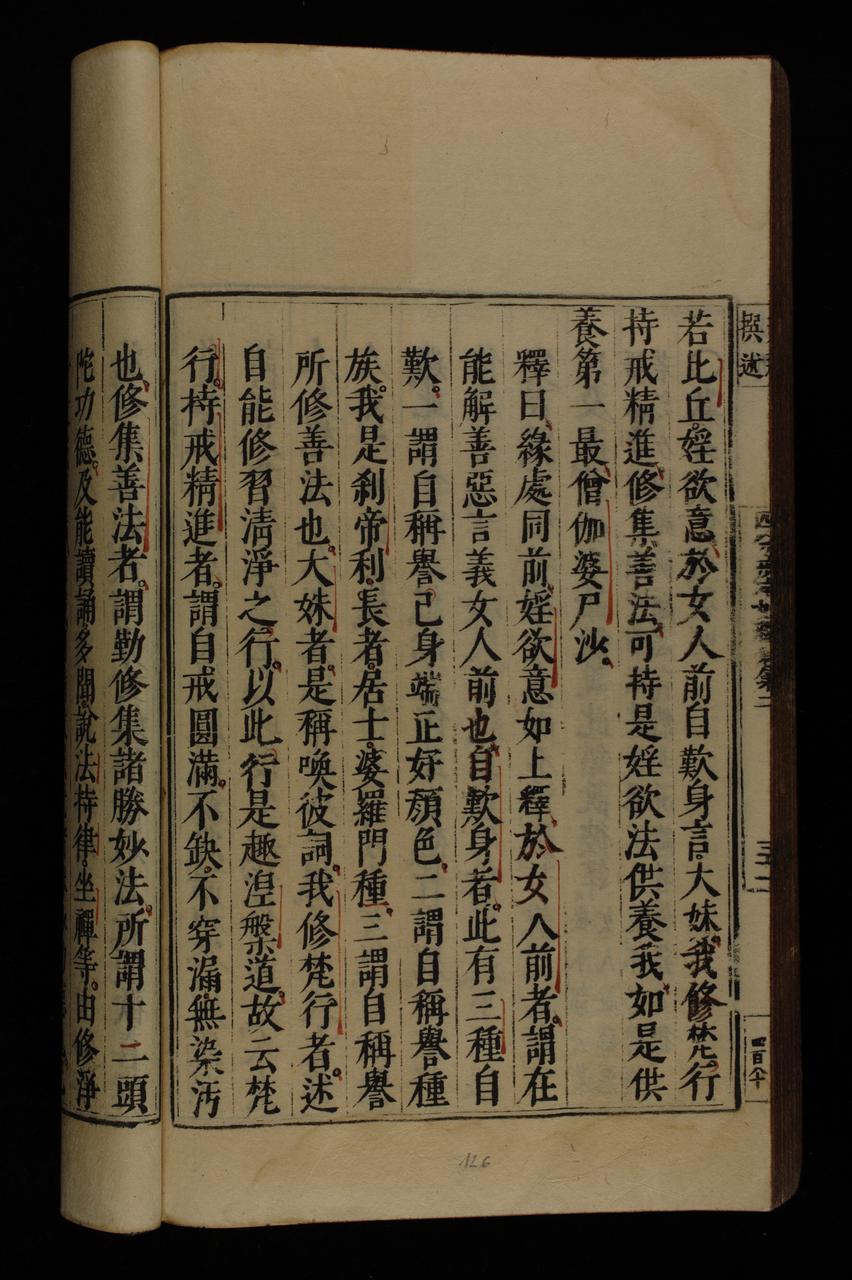 撰述
若比丘婬欲意於女人前自歎身言大妹我修梵行
持戒精進修集善法可持是婬欲法供養我如是供
養第一最僧伽婆尸沙
釋曰緣處同前婬欲意如上釋於女人前者謂在
能解善惡言義女人前也自歎身者此有三種自
歎一謂自稱譽己身端正好顏色二謂自稱譽種
族我是剎帝利長者居士婆羅門種三謂自稱譽
所修善法也大妹者是稱喚彼詞我修梵行者述
自能修習清淨之行以此行是趣涅槃道故云梵
行持戒精進者謂自戒圓滿不缺不穿漏無染污
也修集善法者謂勤修集諸勝妙法所謂十二頭
陀功德及能讀誦多聞說法持律坐禪等由修淨
四百八十
126